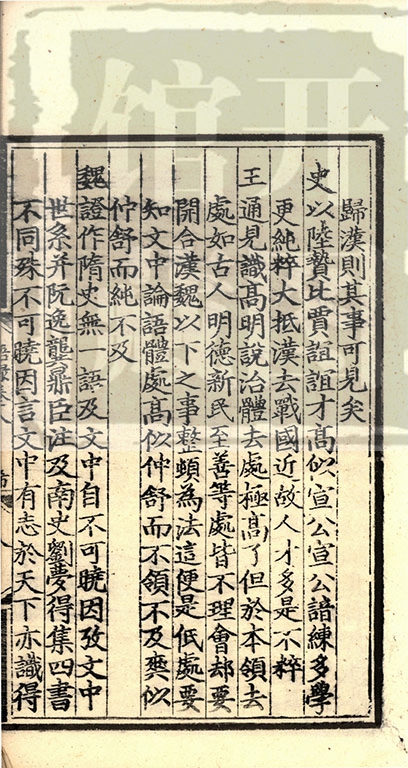 歸漢則其事可見矣
史以陸贄比賈誼誼才高似宣公宣公諳練多學
更純粹大抵漢去戰國近故人才多是不粹
王通見識高明說治體去處極高了但於本領去
處如古人明德新民至善等處皆不理會却要
開合漢魏以下之事整頓為法這便是低處要
知文中論語體處高似仲舒而不領不及爽似
仲舒而純不及
魏證作隋史無一語及文中自不可曉因攷文中
世系并阮逸龔鼎臣注及南史劉夢得集四書
不同殊不可曉因言文中有志於天下亦識得